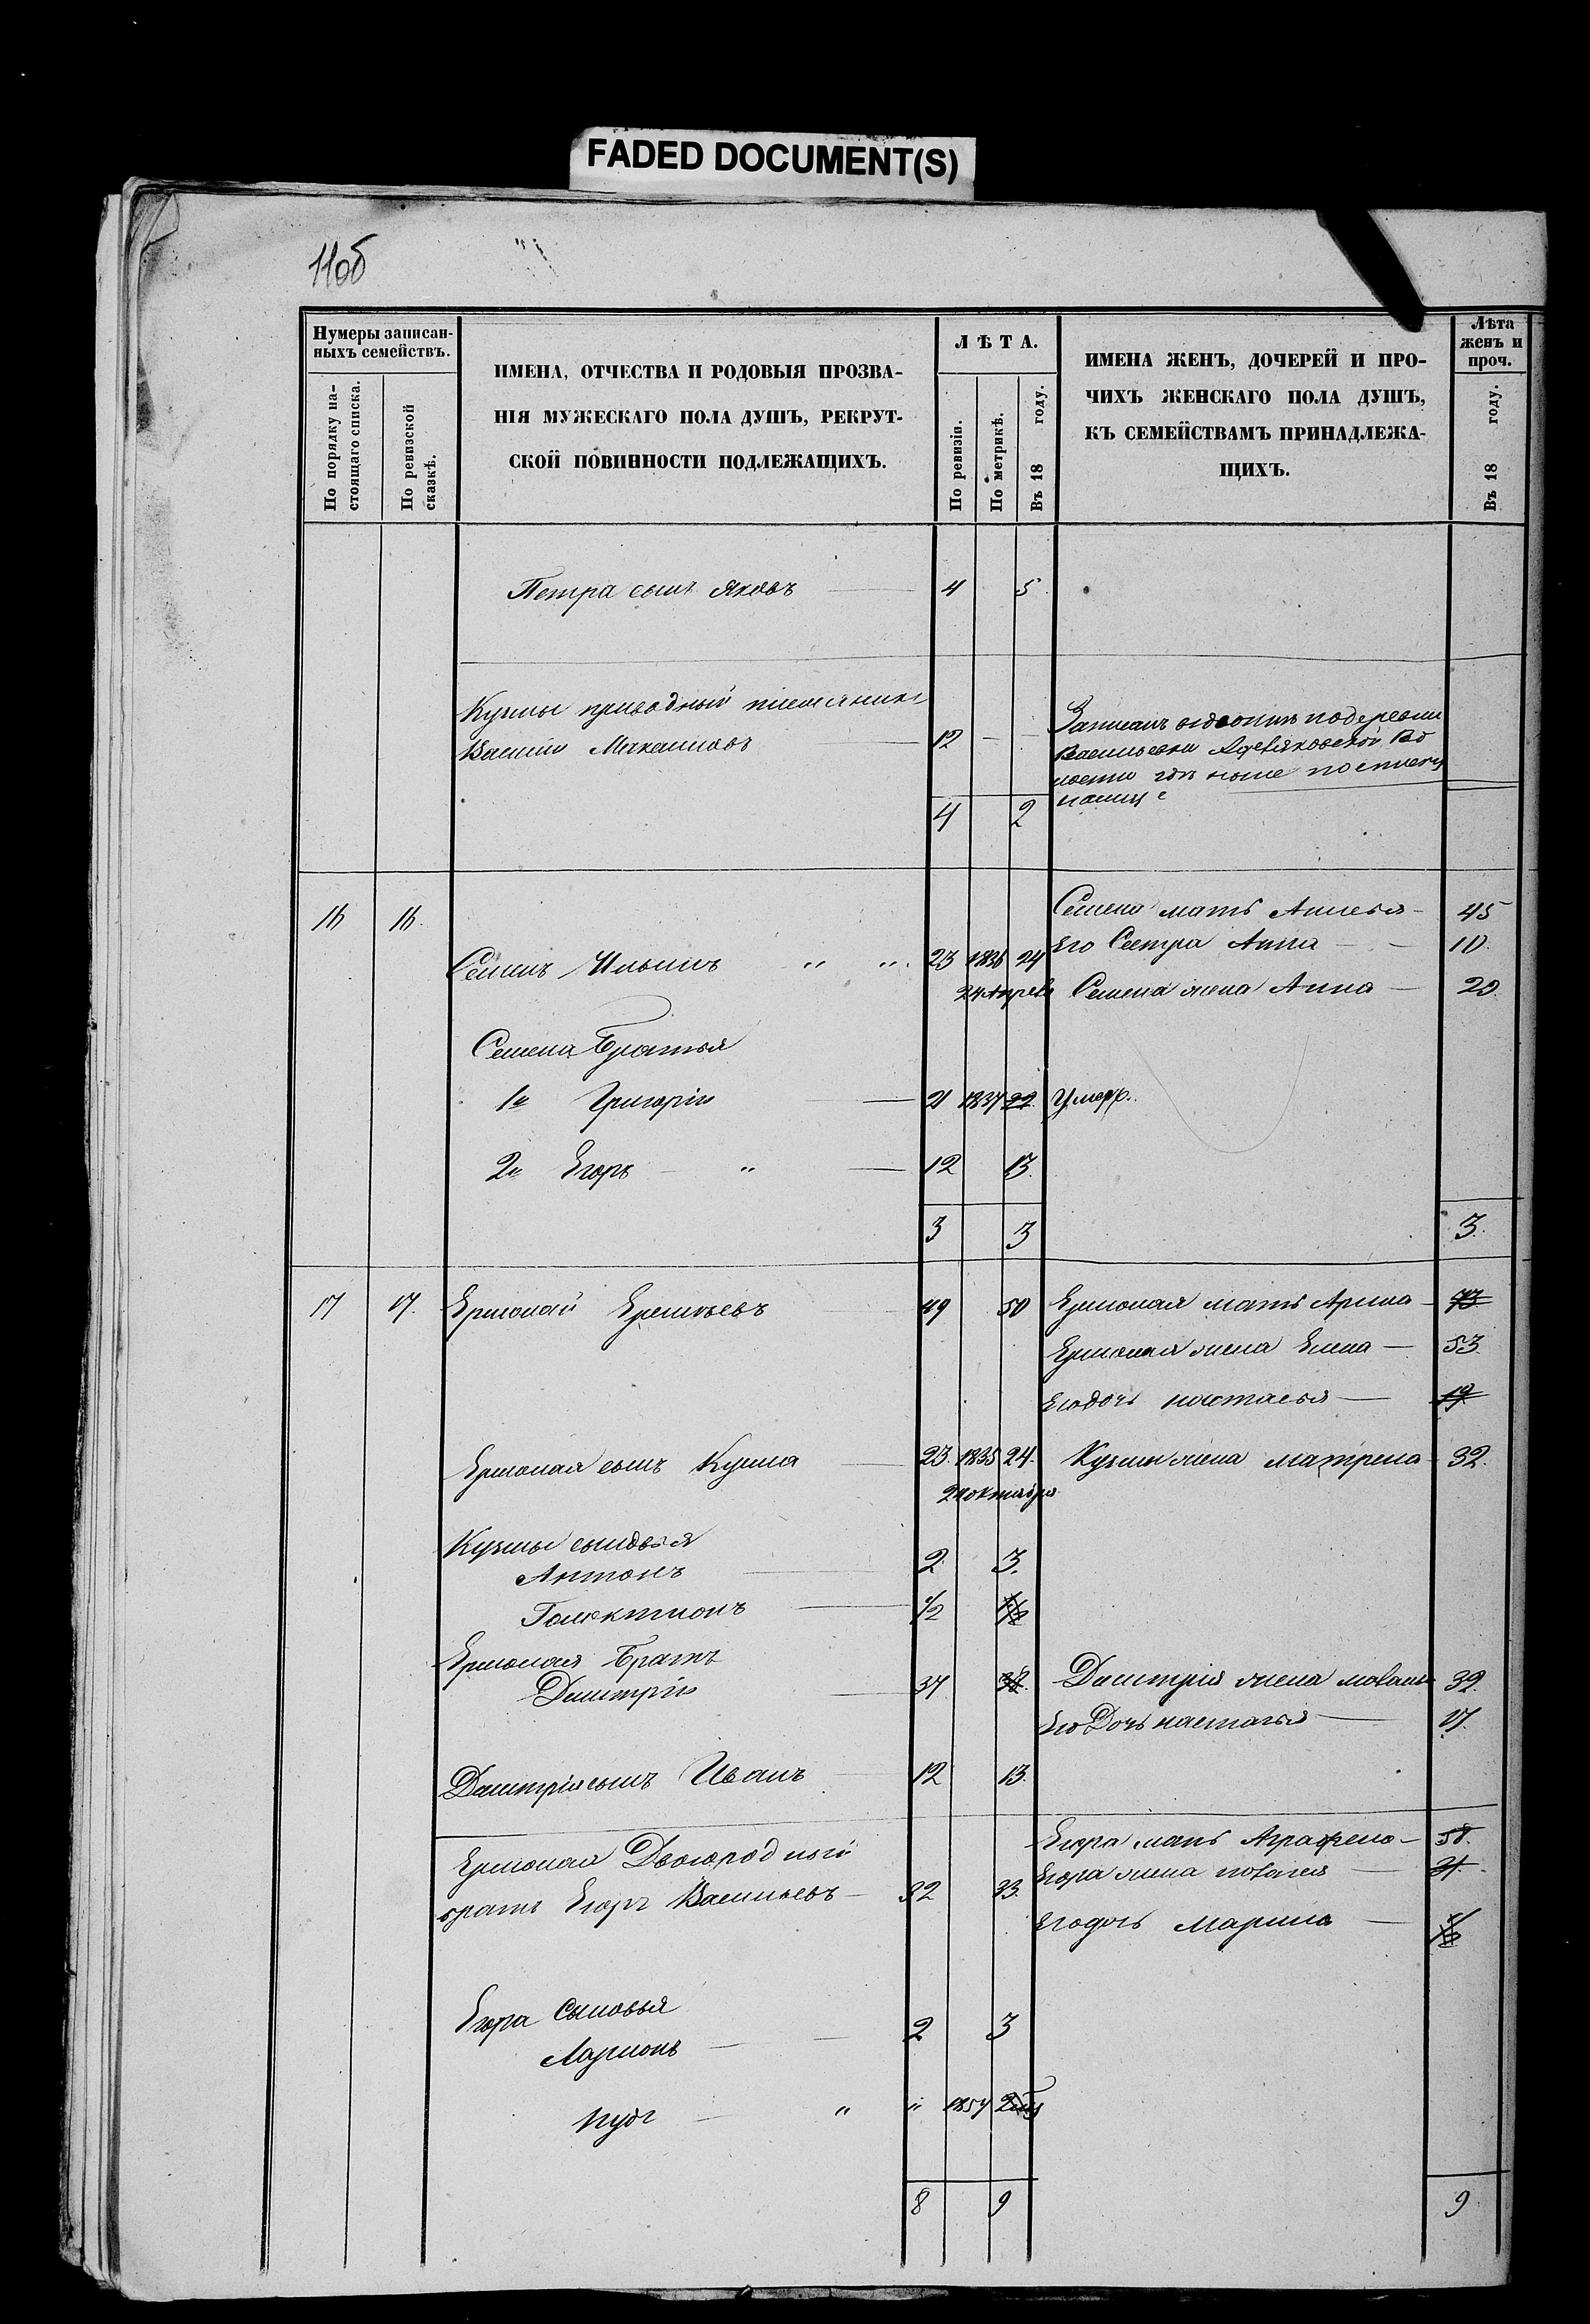 FADED DOCUMENT(S)
11об
Нумеры записан-
ныхъ семействъ.
По порядку на-
стоящаго списка.
По ревизской
сказкѣ.
ИМЕНА, ОТЧЕСТВА И РОДОВЫЯ ПРОЗВА-
НІЯ МУЖЕСКАГО ПОЛА ДУШЪ, РЕКРУТ-
СКОЙ ПОВИННОСТИ ПОДЛЕЖАЩИХЪ.
ЛѢТА.
По ревизіи.
По метрикѣ.
Въ 18 году.
ИМЕНА ЖЕНЪ, ДОЧЕРЕЙ И ПРО-
ЧИХЪ ЖЕНСКАГО ПОЛА ДУШЪ,
КЪ СЕМЕЙСТВАМЪ ПРИНАДЛЕЖА-
ЩИХЪ.
Лѣта
женъ и
проч.
Въ 18 году.
Петра сынъ Яковъ 4 5
Кузмы племяникъ
Василій Михаиловъ 12
Записанъ подеревни
Васильевки Во
лости гдѣ
4 2
16 16.
Семена мать 45
Его Сестра Анна 10
Семенъ Ильинъ 23 1836 24
24 Апреля Семена жена Анна 20
Семена Братья
1й Григорій 21 1837 22 Умеръ.
2й Егоръ 12 13
3 3 3
17 17. Ермолай 49 50 Ермолая мать Арина 73
Ермолая жена Елена 53
Егодочь настасья 19
Ермолая сынъ Кузма 23 1835 24 Кузмы жена матрена 32
октября
Кузмы сыновья
Антонъ 2 3
Галактионъ 1/2
Ермолая Братъ
Дмитрій 37 38 Дмитрія жена 39
Его Дочь настасья 17
Дмитрія сынъ Иванъ 12 13
Егора мать Аграфена 58
Ермолая Двоюродной
братъ Егоръ Васильевъ 32 33 Егора жена 31
Егодочь Марина
Егора Сыновья
Ларионъ 2 3
1857
8 9 9